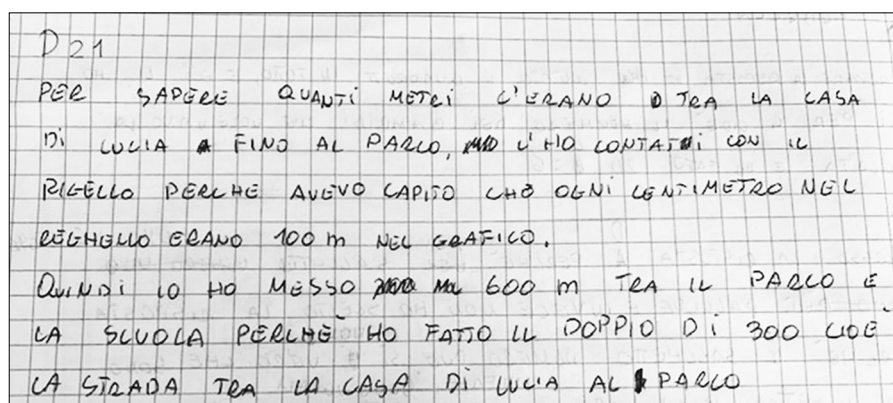 D21
PER SAPERE QUANTI METRI C'ERANO TRA LA CASA
DI LUCIA FINO AL PARCO, L'HO CONTATI CON IL
RIGELLO PERCHE AVEVO CAPITO CHE OGNI CENTIMETRO NEL
REGHELLO ERANO 100 m NEL GRAFICO.
QUINDI IO HO MESSO 600 m TRA IL PARCO E
LA SCUOLA PERCHÈ HO FATTO IL DOPPIO DI 300 CIOÈ
LA STRADA TRA LA CASA DI LUCIA AL PARCO